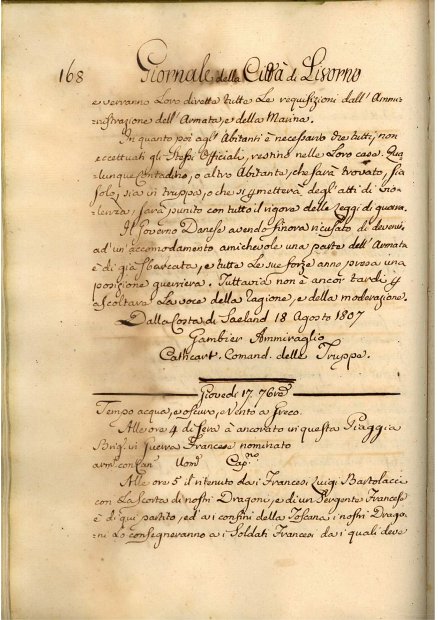 168 Giornale della Città di Livorno
e verranno Loro dirette tutte Le requisizioni dall' Ammi-
nistrazione dell' Armata, e della Marina.
In quanto poi agl' Abitanti è necessario che tutti, non
eccettuati gli Stessi Officiali, restino nelle Loro case. Qua-
lunque Contadino, o altro Abitante, che sarà trovato, sia
solo, sia in truppa, o che si permetterà degl' atti di vio-
lenza, sarà punito con tutto il rigore delle Leggi di guerra.
Il Governo Danese avendo finora ricusato di devenire
ad' un' accomodamento amichevole una parte dell' Armata
è di già sbarcata, e tutte Le sue forze anno presa una
posizione guerriera. Tuttavia non è ancor tardi p
ascoltare La voce della ragione, e della moderazione.
Dalla Costa di Saeland 18 Agosto 1807
Gambier Ammiraglio
Cathcart. Comand. delle Truppe.
Giovedì 17. 7bre
Tempo acqua, e oscuro, e Vento a Greco.
Alle ore 4 di Sera è ancorato in questa Piaggia
Brig. di Guerra Francese nominato
arm. con Can Uom Cap.no
Alle ore 5 il ritenuto da i Francesi Luigi Bartolacci
con La Scorta di nostri Dragoni, e di un Sergente Francese
è di qui partito, ed' a i confini della Toscana i nostri Drago-
ni Lo consegneranno a i Soldati Francesi da i quali deve